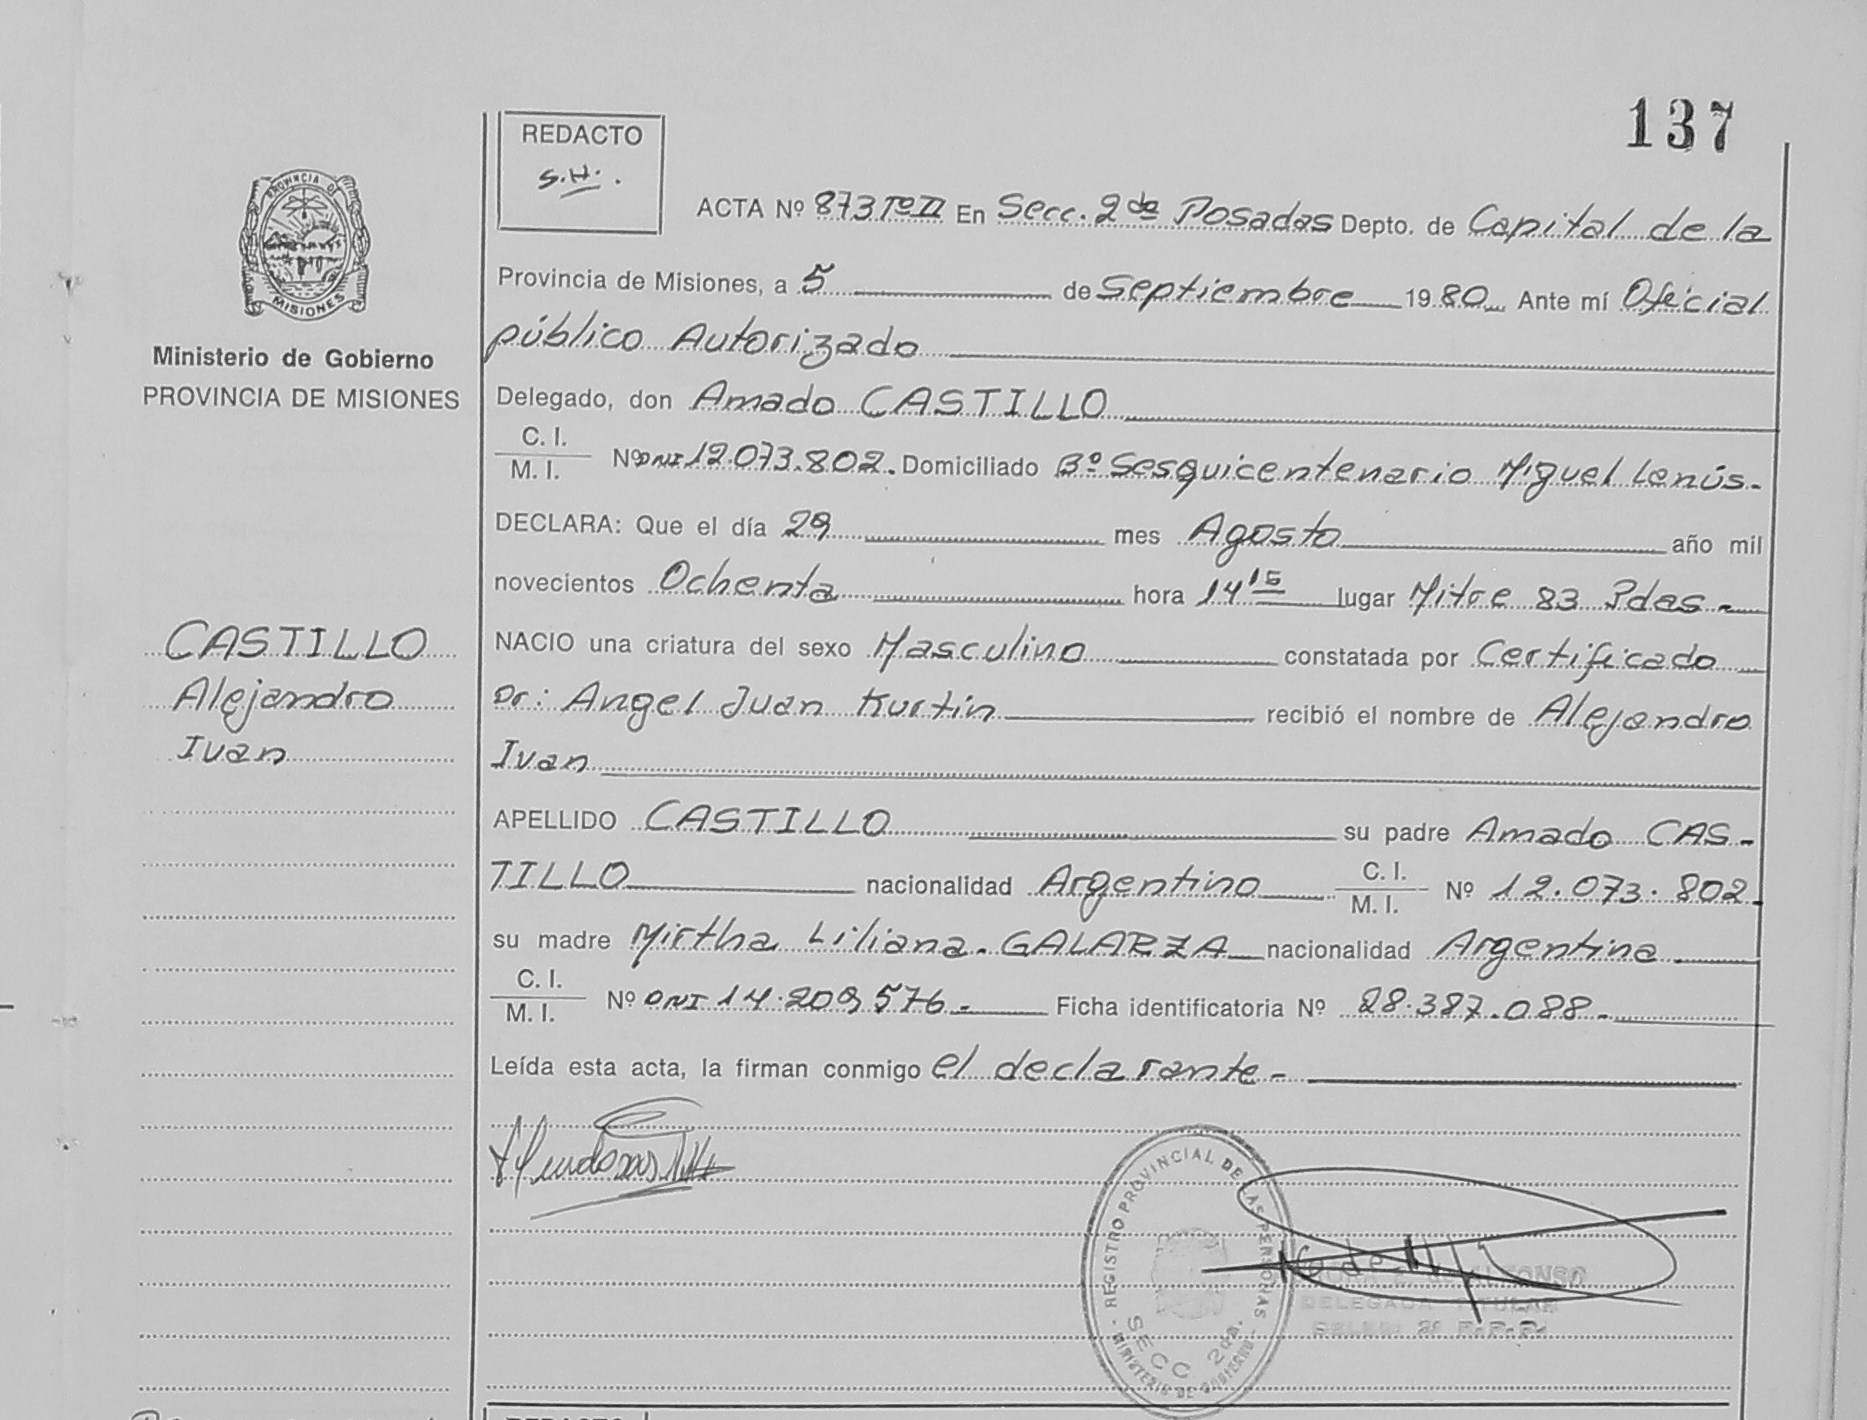 137
REDACTO
S.H.
PROVINCIA DE
MISIONES
Ministerio de Gobierno
PROVINCIA DE MISIONES
ACTA Nº 873 Tº II En Secc. 2da Posadas Depto. de Capital de la
Provincia de Misiones, a 5 de Septiembre 1980 Ante mí Oficial
público Autorizado
Delegado, don Amado CASTILLO
C. I.
M. I. Nº DNI 12.073.802. Domiciliado Bº Sesquicentenario Miguel Lanús.
DECLARA: Que el día 29 mes Agosto año mil
novecientos Ochenta hora 14 15 lugar Mitre 83 Pdas -
CASTILLO
Alejandro
Ivan
NACIO una criatura del sexo Masculino constatada por Certificado
Dr: Angel Juan Kurtin recibió el nombre de Alejandro
Ivan
APELLIDO CASTILLO su padre Amado CAS-
TILLO nacionalidad Argentino C. I. M. I. Nº 12.073.802.
su madre Mirtha Liliana GALARZA nacionalidad Argentina
C. I.
M. I. Nº DNI 14.209.576 - Ficha identificatoria Nº 28.387.088 -
Leída esta acta, la firman conmigo el declarante -
REGISTRO PROVINCIAL DE LAS PERSONAS
SECC 2da.
MINISTERIO DE GOBIERNO
DELEGADA TITULAR
REDACTO